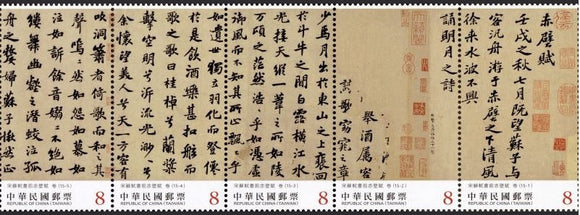 赤壁賦
壬戌之秋七月既望蘇子與
客汎舟游于赤壁之下清風
徐来水波不興
誦明月之詩
舉酒屬客
歌窈窕之章
少焉月出於東山之上裵回
於斗牛之間白露横江水
光接天縱一葦之所如陵
万頃之茫然浩浩乎如憑虛
御風而不知其所止飄飄乎
如遺世獨立羽化而登僊
於是飲酒樂甚扣舷而
歌之歌曰桂棹兮蘭槳
擊空明兮泝流光渺渺兮
余懷望美人兮天一方客有
吹洞簫者倚歌而和之其
聲嗚嗚然如怨如慕如
泣如訴餘音嫋嫋不絶如
縷舞幽壑之潛蛟泣孤
嫠婦蘇子愀然正
宋蘇軾書前赤壁賦 卷 (15-5)
中華民國郵票 8
REPUBLIC OF CHINA (TAIWAN)
宋蘇軾書前赤壁賦 卷 (15-4)
中華民國郵票 8
REPUBLIC OF CHINA (TAIWAN)
宋蘇軾書前赤壁賦 卷 (15-3)
中華民國郵票 8
REPUBLIC OF CHINA (TAIWAN)
宋蘇軾書前赤壁賦 卷 (15-2)
中華民國郵票 8
REPUBLIC OF CHINA (TAIWAN)
宋蘇軾書前赤壁賦 卷 (15-1)
中華民國郵票 8
REPUBLIC OF CHINA (TAIWAN)